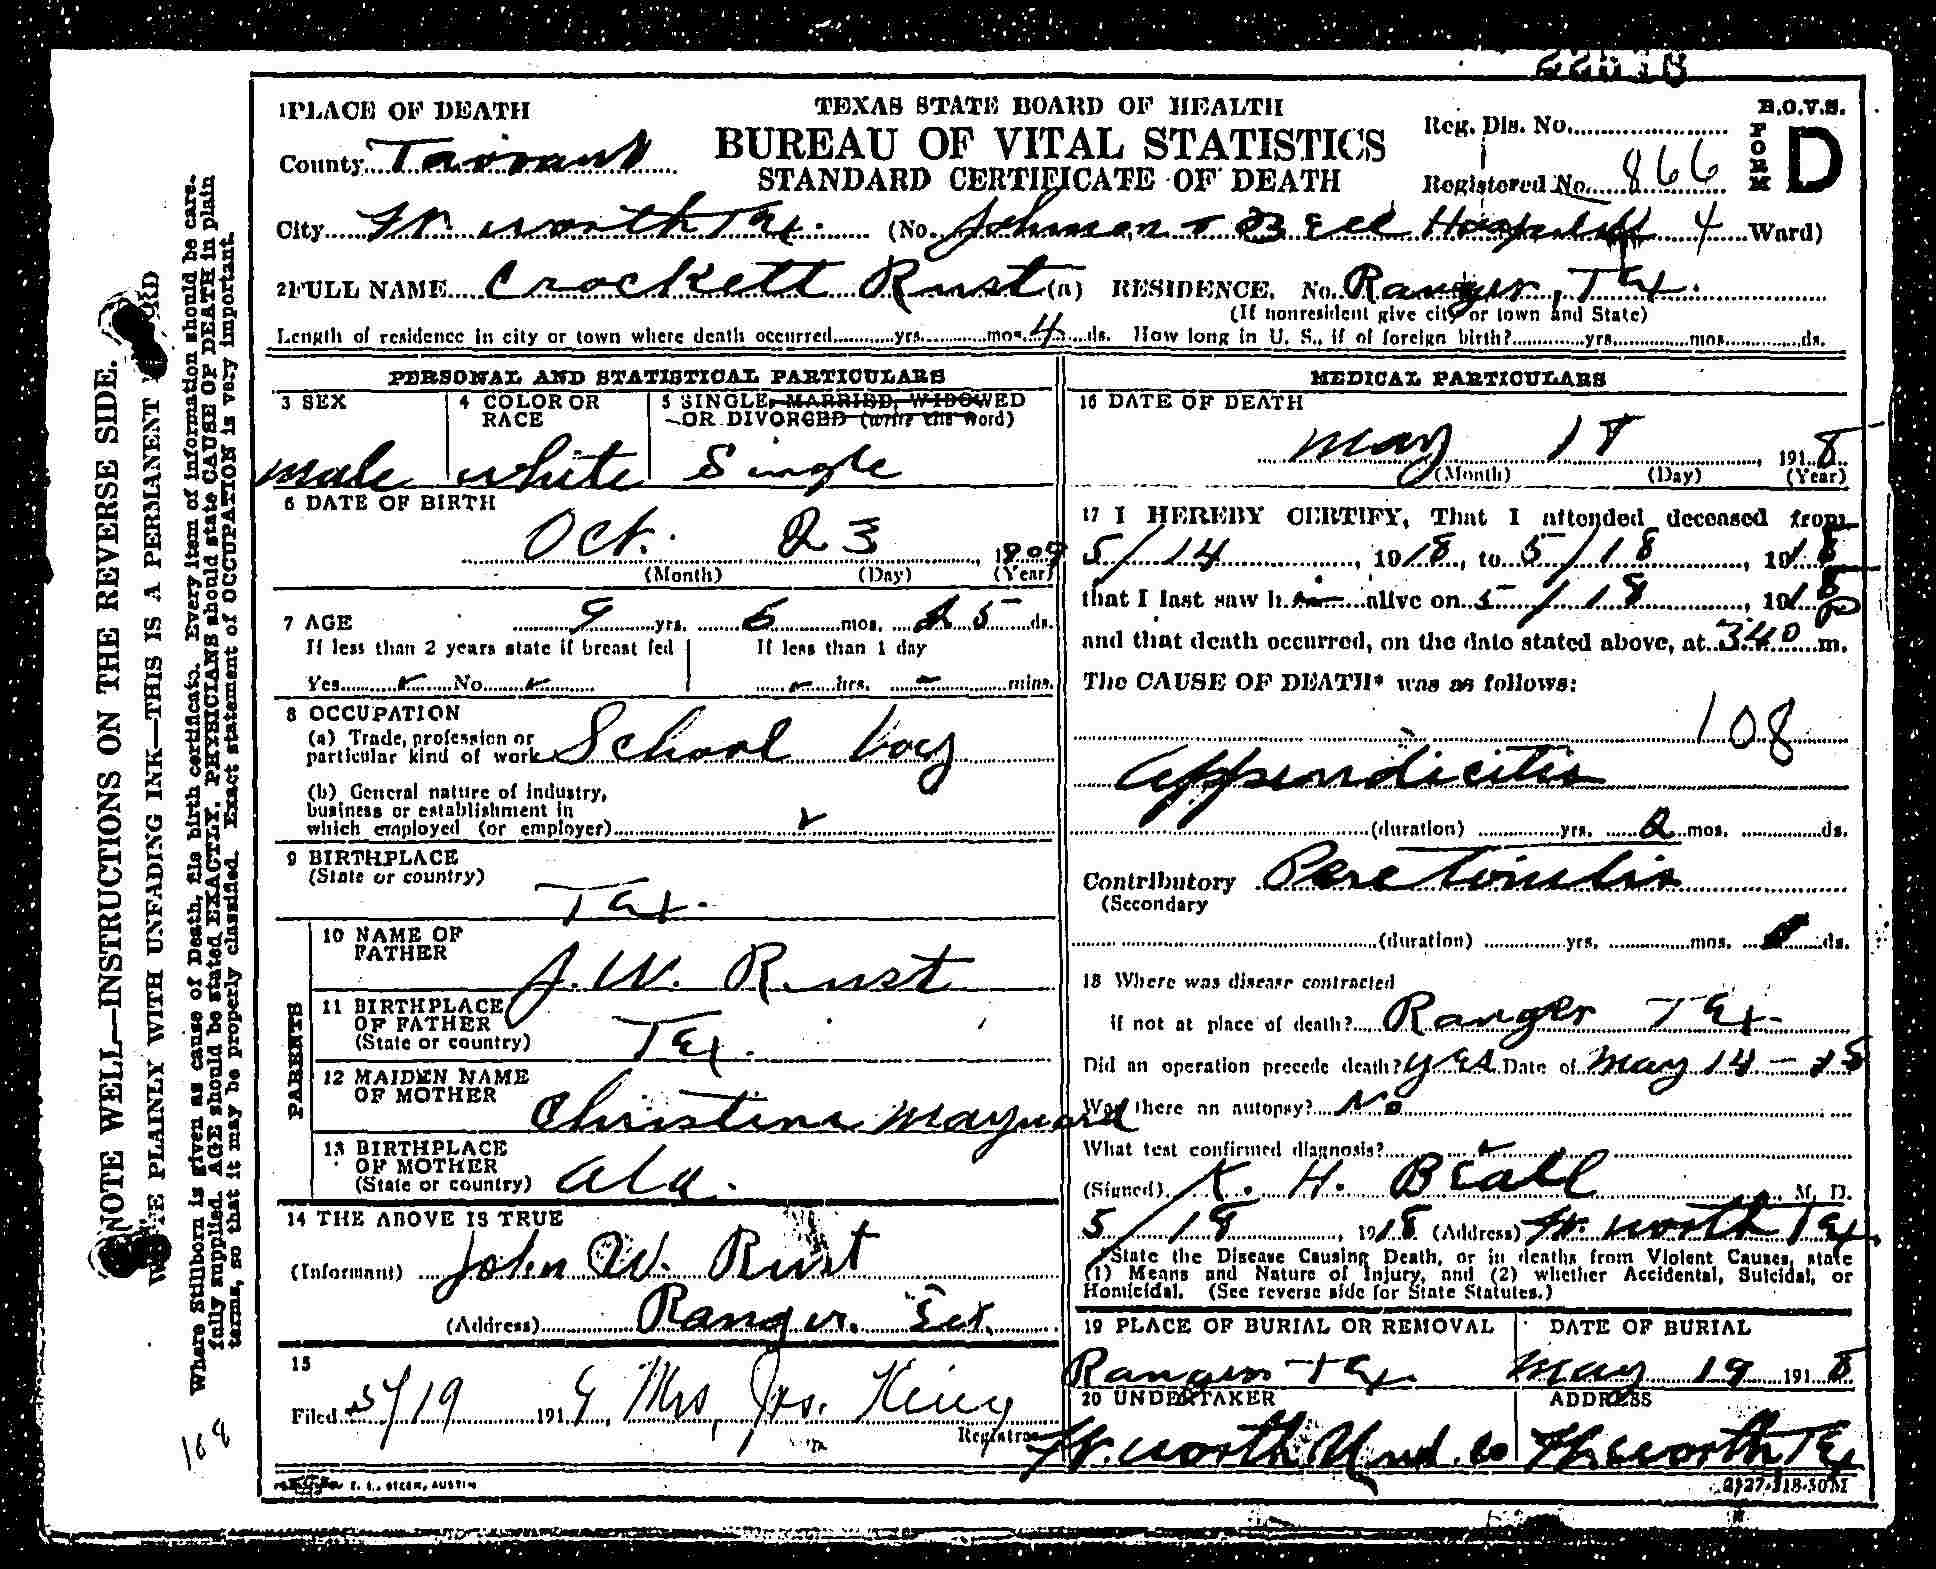 1 PLACE OF DEATH
TEXAS STATE BOARD OF HEALTH
B.O.V.S.
FORM D
County Tarrant
BUREAU OF VITAL STATISTICS
STANDARD CERTIFICATE OF DEATH
Reg. Dis. No.
Registered No. 866
City Ft. Worth Tex. (No. Johnson & Beall Hospital 4 Ward)
2 FULL NAME Crockett Rust (a) RESIDENCE. No. Ranger, Tex.
(If nonresident give city or town and State)
Length of residence in city or town where death occurred yrs. mos. 4 ds. How long in U. S., if of foreign birth? yrs. mos. ds.
PERSONAL AND STATISTICAL PARTICULARS
3 SEX
male
4 COLOR OR RACE
white
5 SINGLE, MARRIED, WIDOWED
OR DIVORCED (write the word)
Single
6 DATE OF BIRTH
Oct. 23
(Month) (Day) (Year)
7 AGE 9 yrs. 6 mos. 25 ds.
If less than 2 years state if breast fed
Yes No
If less than 1 day
hrs. mins.
8 OCCUPATION
(a) Trade, profession or
particular kind of work School boy
(b) General nature of industry,
business or establishment in
which employed (or employer)
9 BIRTHPLACE
(State or country)
Tex.
PARENTS
10 NAME OF
FATHER
J. W. Rust
11 BIRTHPLACE
OF FATHER
(State or country)
Tex.
12 MAIDEN NAME
OF MOTHER
Christena Maynard
13 BIRTHPLACE
OF MOTHER
(State or country) Ala.
14 THE ABOVE IS TRUE
(Informant) John W. Rust
(Address) Ranger. Tex.
15
Filed 5/19 191 Mrs. Jas. King
Registrar
MEDICAL PARTICULARS
16 DATE OF DEATH
May 18, 1918
(Month) (Day) (Year)
17 I HEREBY CERTIFY, That I attended deceased from
5/14, 1918, to 5/18, 1918
that I last saw him alive on 5/18, 1918
and that death occurred, on the date stated above, at 3:40 P m.
The CAUSE OF DEATH* was as follows:
108
Appendicitis
(duration) yrs. 2 mos. ds.
Contributory Peretonitis
(Secondary
(duration) yrs. mos. ds.
18 Where was disease contracted
if not at place of death? Ranger Tex.
Did an operation precede death? yes Date of May 14-18
Was there an autopsy? No
What test confirmed diagnosis?
(Signed) K. H. Beall M. D.
5/18, 1918 (Address) Ft. Worth Tex.
*State the Disease Causing Death, or in deaths from Violent Causes, state
(1) Means and Nature of Injury, and (2) whether Accidental, Suicidal, or
Homicidal. (See reverse side for State Statutes.)
19 PLACE OF BURIAL OR REMOVAL
Ranger Tex.
DATE OF BURIAL
May 19 1918
20 UNDERTAKER
Ft. Worth Und. Co
ADDRESS
Ft. Worth Tex
AUSTIN
NOTE WELL—INSTRUCTIONS ON THE REVERSE SIDE.
WRITE PLAINLY WITH UNFADING INK—THIS IS A PERMANENT RECORD
Where Stillborn is given as cause of Death, file birth certificate. Every item of information should be care-
fully supplied. AGE should be stated EXACTLY. PHYSICIANS should state CAUSE OF DEATH in plain
terms, so that it may be properly classified. Exact statement of OCCUPATION is very important.